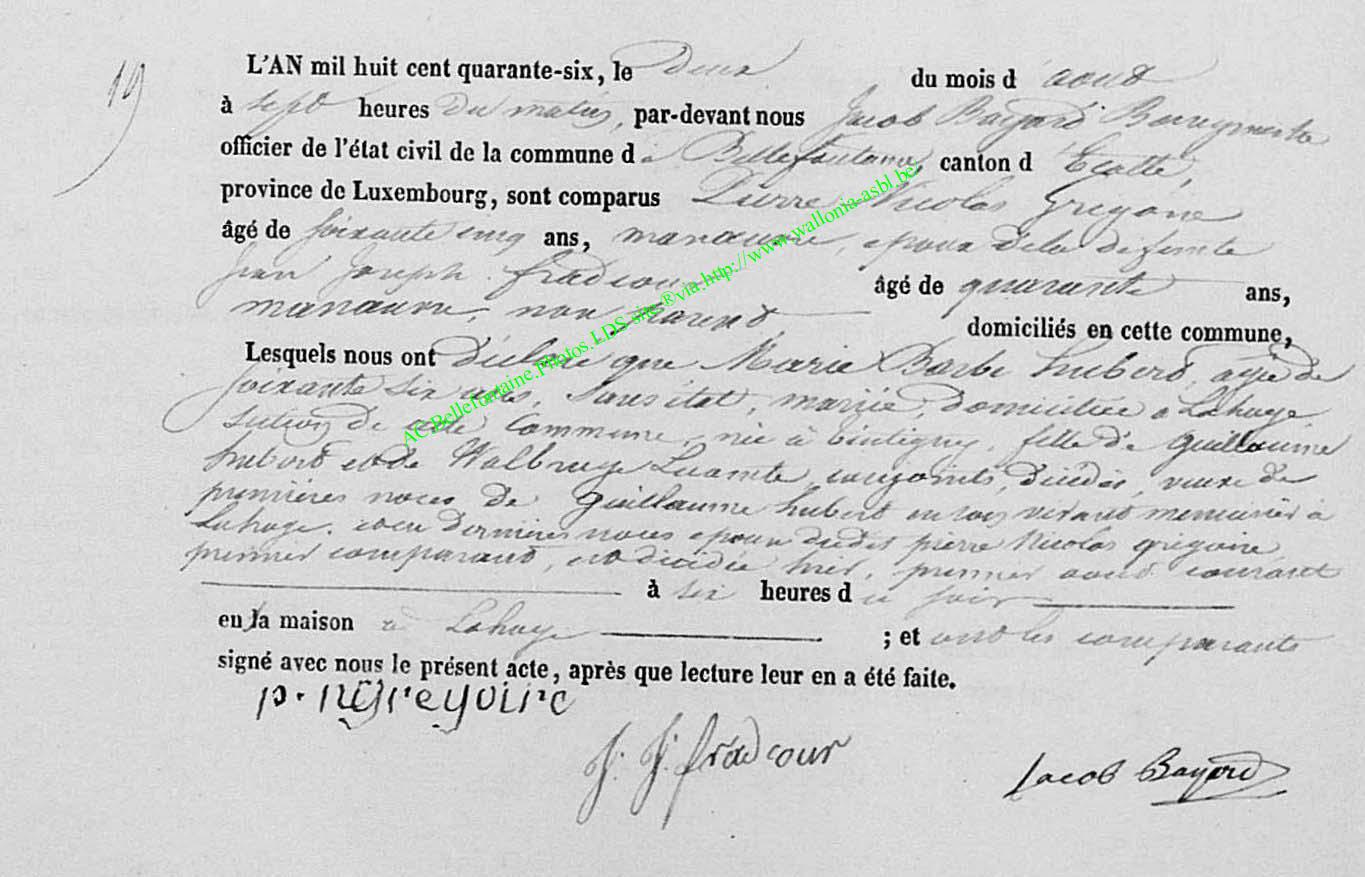 19
L'AN mil huit cent quarante-six, le Deux du mois d'aout
à sept heures Du matin, par-devant nous Jacob Bayard Bourgmestre
officier de l'état civil de la commune de Bellefontaine, canton d'Etalle,
province de Luxembourg, sont comparus Pierre Nicolas Grégoire
âgé de soixante cinq ans, manœuvre, epoux de la defunte
Jean Joseph fradcour âgé de quarante ans,
manœuvre, non parent, domiciliés en cette commune,
Lesquels nous ont Déclaré que Marie Barbe hubert, agée de
soixante six ans, sans état, mariée, domiciliée a Lahage
section de cette Commune, née à fille de Guillaume
hubert et de Walburge conjoints, décédés, veuve de
premières noces de Guillaume hubert en son vivant menuisier à
Lahage, et en dernières noces epouse dudit pierre Nicolas grégoire
premier comparant, est décédée hier, premier aout courant
à six heures du soir
en la maison a Lahage ; et ont les comparants
signé avec nous le présent acte, après que lecture leur en a été faite.
p. n Gregoire
J. J. fradcour
Jacob Bayard
AC.Bellefontaine.Photos.LDS site ®via.http://www.wallonia-asbl.be/